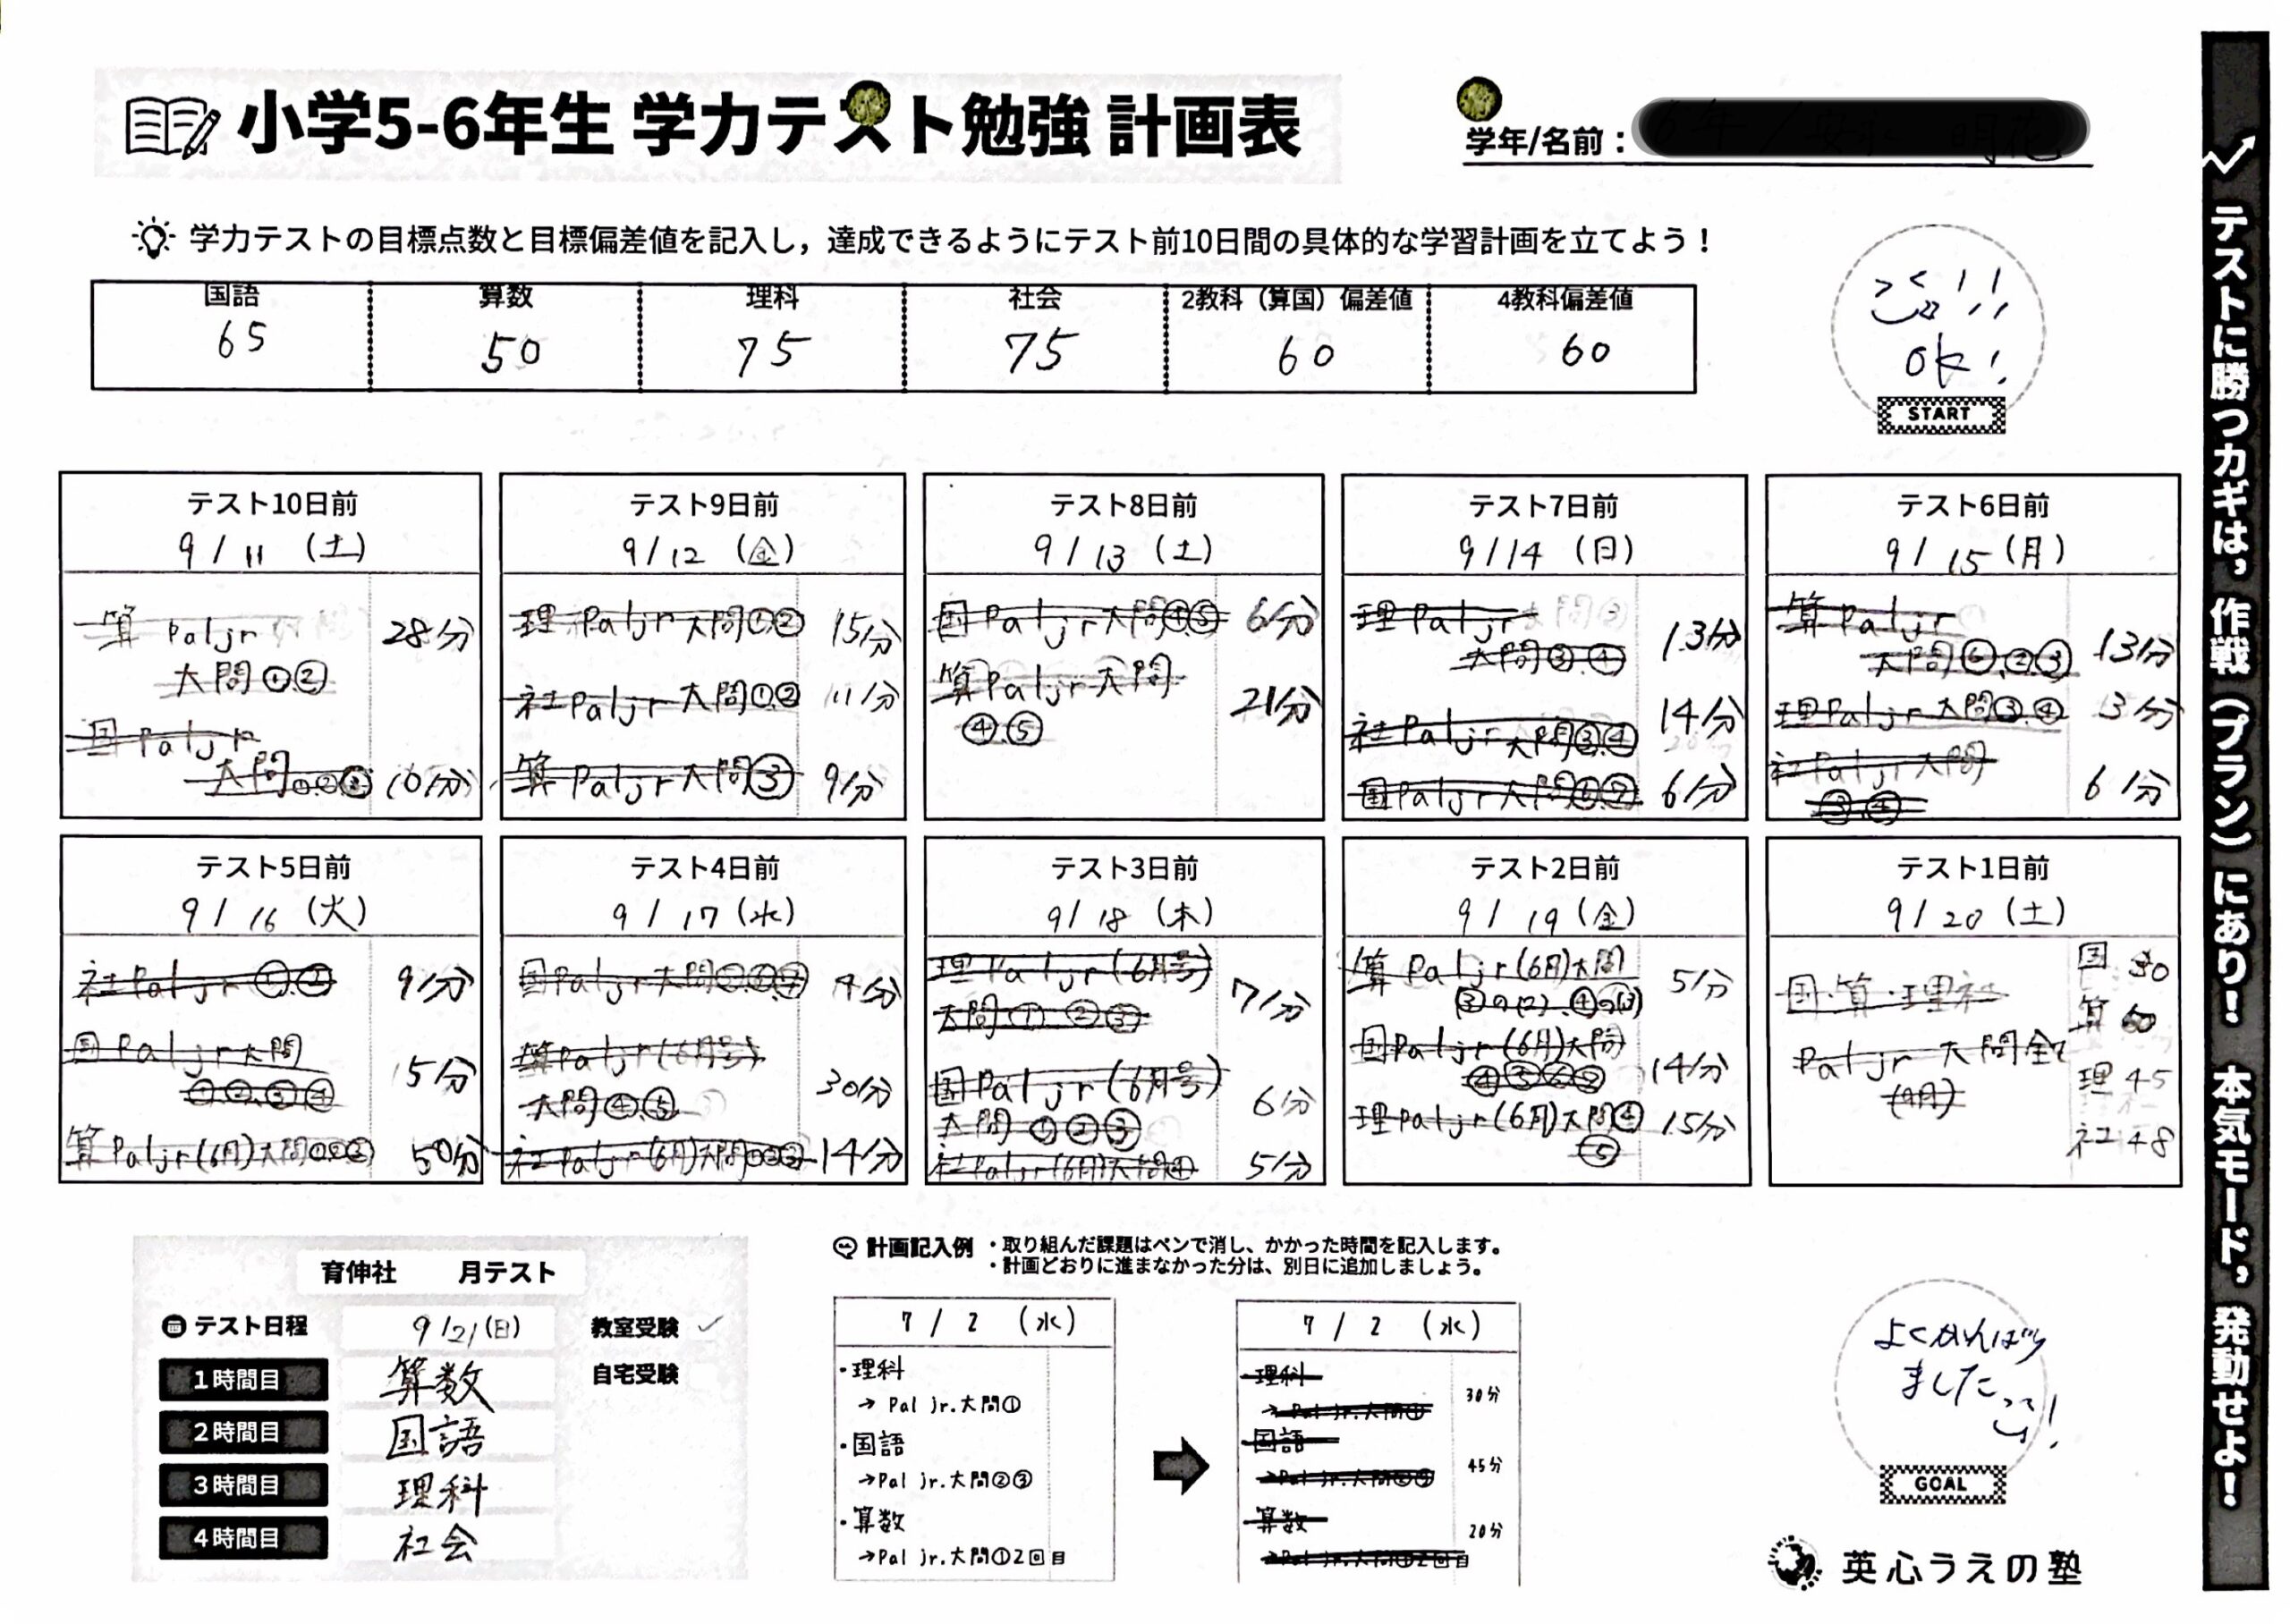 小学5-6年生 学力テスト勉強 計画表
学年/名前：
学力テストの目標点数と目標偏差値を記入し，達成できるようにテスト前10日間の具体的な学習計画を立てよう！
国語 算数 理科 社会 2教科（算国）偏差値 4教科偏差値
65 50 75 75 60 60
OK!
START
テスト10日前
9/11（土）
算 Pal jr 28分
大問①②
国 Pal jr
大問①②③ 10分
テスト9日前
9/12（金）
理 Pal jr 大問①② 15分
社 Pal jr 大問①② 11分
算 Pal jr 大問③ 9分
テスト8日前
9/13（土）
国 Pal jr 大問④⑤ 6分
算 Pal jr 大問 21分
④⑤
テスト7日前
9/14（日）
理 Pal jr 13分
大問③④
社 Pal jr 大問③④ 14分
国 Pal jr 大問 6分
テスト6日前
9/15（月）
算 Pal jr
大問①②③ 13分
理 Pal jr 大問③④ 3分
社 Pal jr 大問 6分
③④
テスト5日前
9/16（火）
社 Pal jr ①② 9分
国 Pal jr 大問 15分
①②③④
算 Pal jr (6月)大問①②③ 50分
テスト4日前
9/17（水）
国 Pal jr 大問 4分
算 Pal jr (6月号)
大問④⑤ 30分
社 Pal jr (6月)大問①②③ 14分
テスト3日前
9/18（木）
理 Pal jr (6月号)
大問①②③ 7分
国 Pal jr (6月号)
大問①②③ 6分
社 Pal jr (6月)大問④ 5分
テスト2日前
9/19（金）
算 Pal jr (6月)大問 5分
③の(2) ④の(3)
国 Pal jr (6月)大問 14分
理 Pal jr (6月)大問④ 15分
⑤
テスト1日前
9/20（土）
国・算・理・社
Pal jr 大問全て
(9月)
国 30
算 60
理 45
社 48
育伸社 月テスト
テスト日程 9/21(日) 教室受験 ✓
自宅受験
1時間目 算数
2時間目 国語
3時間目 理科
4時間目 社会
計画記入例
・取り組んだ課題はペンで消し、かかった時間を記入します。
・計画どおりに進まなかった分は、別日に追加しましょう。
7/2（水）
・理科
→Pal jr.大問①
・国語
→Pal jr.大問②③
・算数
→Pal jr.大問①2回目
7/2（水）
・理科 30分
→Pal jr.大問①
・国語 45分
→Pal jr.大問②③
・算数 20分
→Pal jr.大問①2回目
よくがんばり
ました
GOAL
英心うえの塾
テストに勝つカギは，作戦（プラン）にあり！ 本気モード，発動せよ！